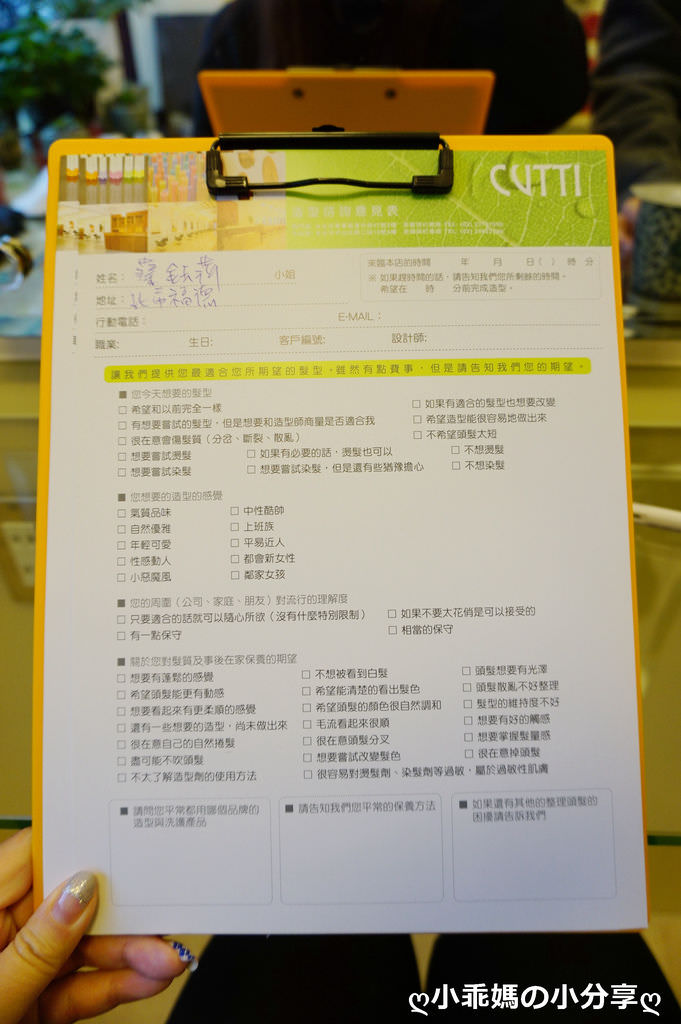 CUTTI
姓名: 小姐
來臨本店的時間 年 月 日( ) 時 分
※ 如果趕時間的話,請告知我們您所剩餘的時間。
希望在 時 分前完成造型。
地址: 北市福德
行動電話: E-MAIL:
職業: 生日: 客戶編號: 設計師:
讓我們提供您最適合您所期望的髮型。雖然有點費事,但是請告知我們您的期望。
■ 您今天想要的髮型
□ 希望和以前完全一樣 □ 如果有適合的髮型也想要改變
□ 有想要嘗試的髮型,但是想要和造型師商量是否適合我 □ 希望造型能很容易地做出來
□ 很在意會傷髮質(分岔、斷裂、散亂) □ 不希望頭髮太短
□ 想要嘗試燙髮 □ 如果有必要的話,燙髮也可以 □ 不想燙髮
□ 想要嘗試染髮 □ 想要嘗試染髮,但是還有些猶豫擔心 □ 不想染髮
■ 您想要的造型的感覺
□ 氣質品味 □ 中性酷帥
□ 自然優雅 □ 上班族
□ 年輕可愛 □ 平易近人
□ 性感動人 □ 都會新女性
□ 小惡魔風 □ 鄰家女孩
■ 您的周圍(公司、家庭、朋友)對流行的理解度
□ 只要適合的話就可以隨心所欲(沒有什麼特別限制) □ 如果不要太花俏是可以接受的
□ 有一點保守 □ 相當的保守
■ 關於您對髮質及事後在家保養的期望
□ 想要有蓬鬆的感覺 □ 不想被看到白髮 □ 頭髮想要有光澤
□ 希望頭髮能更有動感 □ 希望能清楚的看出髮色 □ 頭髮散亂不好整理
□ 想要看起來有更柔順的感覺 □ 希望頭髮的顏色很自然調和 □ 髮型的維持度不好
□ 還有一些想要的造型,尚未做出來 □ 毛流看起來很順 □ 想要有好的觸感
□ 很在意自己的自然捲髮 □ 很在意頭髮分叉 □ 想要掌握髮量感
□ 盡可能不吹頭髮 □ 想要嘗試改變髮色 □ 很在意掉頭髮
□ 不太了解造型劑的使用方法 □ 很容易對燙髮劑、染髮劑等過敏,屬於過敏性肌膚
■ 請問您平常都用哪個品牌的
造型與洗護產品
■ 請告知我們您平常的保養方法
■ 如果還有其他的整理頭髮的
困擾請告訴我們
ღ小乖媽の小分享ღ